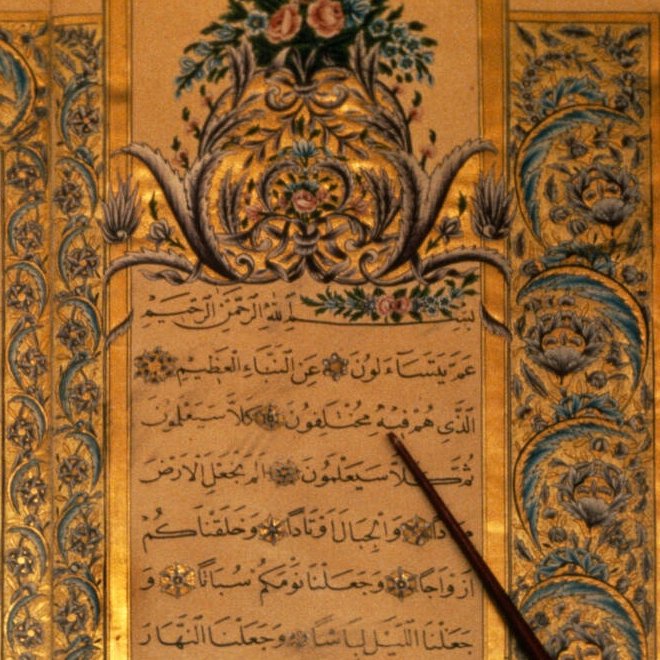 بِسْمِ اللهِ الرَّحْمٰنِ الرَّحِيْمِ
عَمَّ يَتَسَآءَلُونَ عَنِ النَّبَاءِ الْعَظِيْمِ
الَّذِى هُمْ فِيْهِ مُخْتَلِفُونَ كَلَّا سَيَعْلَمُونَ
ثُمَّ كَلَّا سَيَعْلَمُونَ اَلَمْ نَجْعَلِ الْاَرْضَ
مِهَادًا وَالْجِبَالَ اَوْتَادًا وَخَلَقْنَاكُمْ
اَزْوَاجًا وَجَعَلْنَا نَوْمَكُمْ سُبَاتًا وَ
جَعَلْنَا اللَّيْلَ لِبَاسًا وَجَعَلْنَا النَّهَارَ